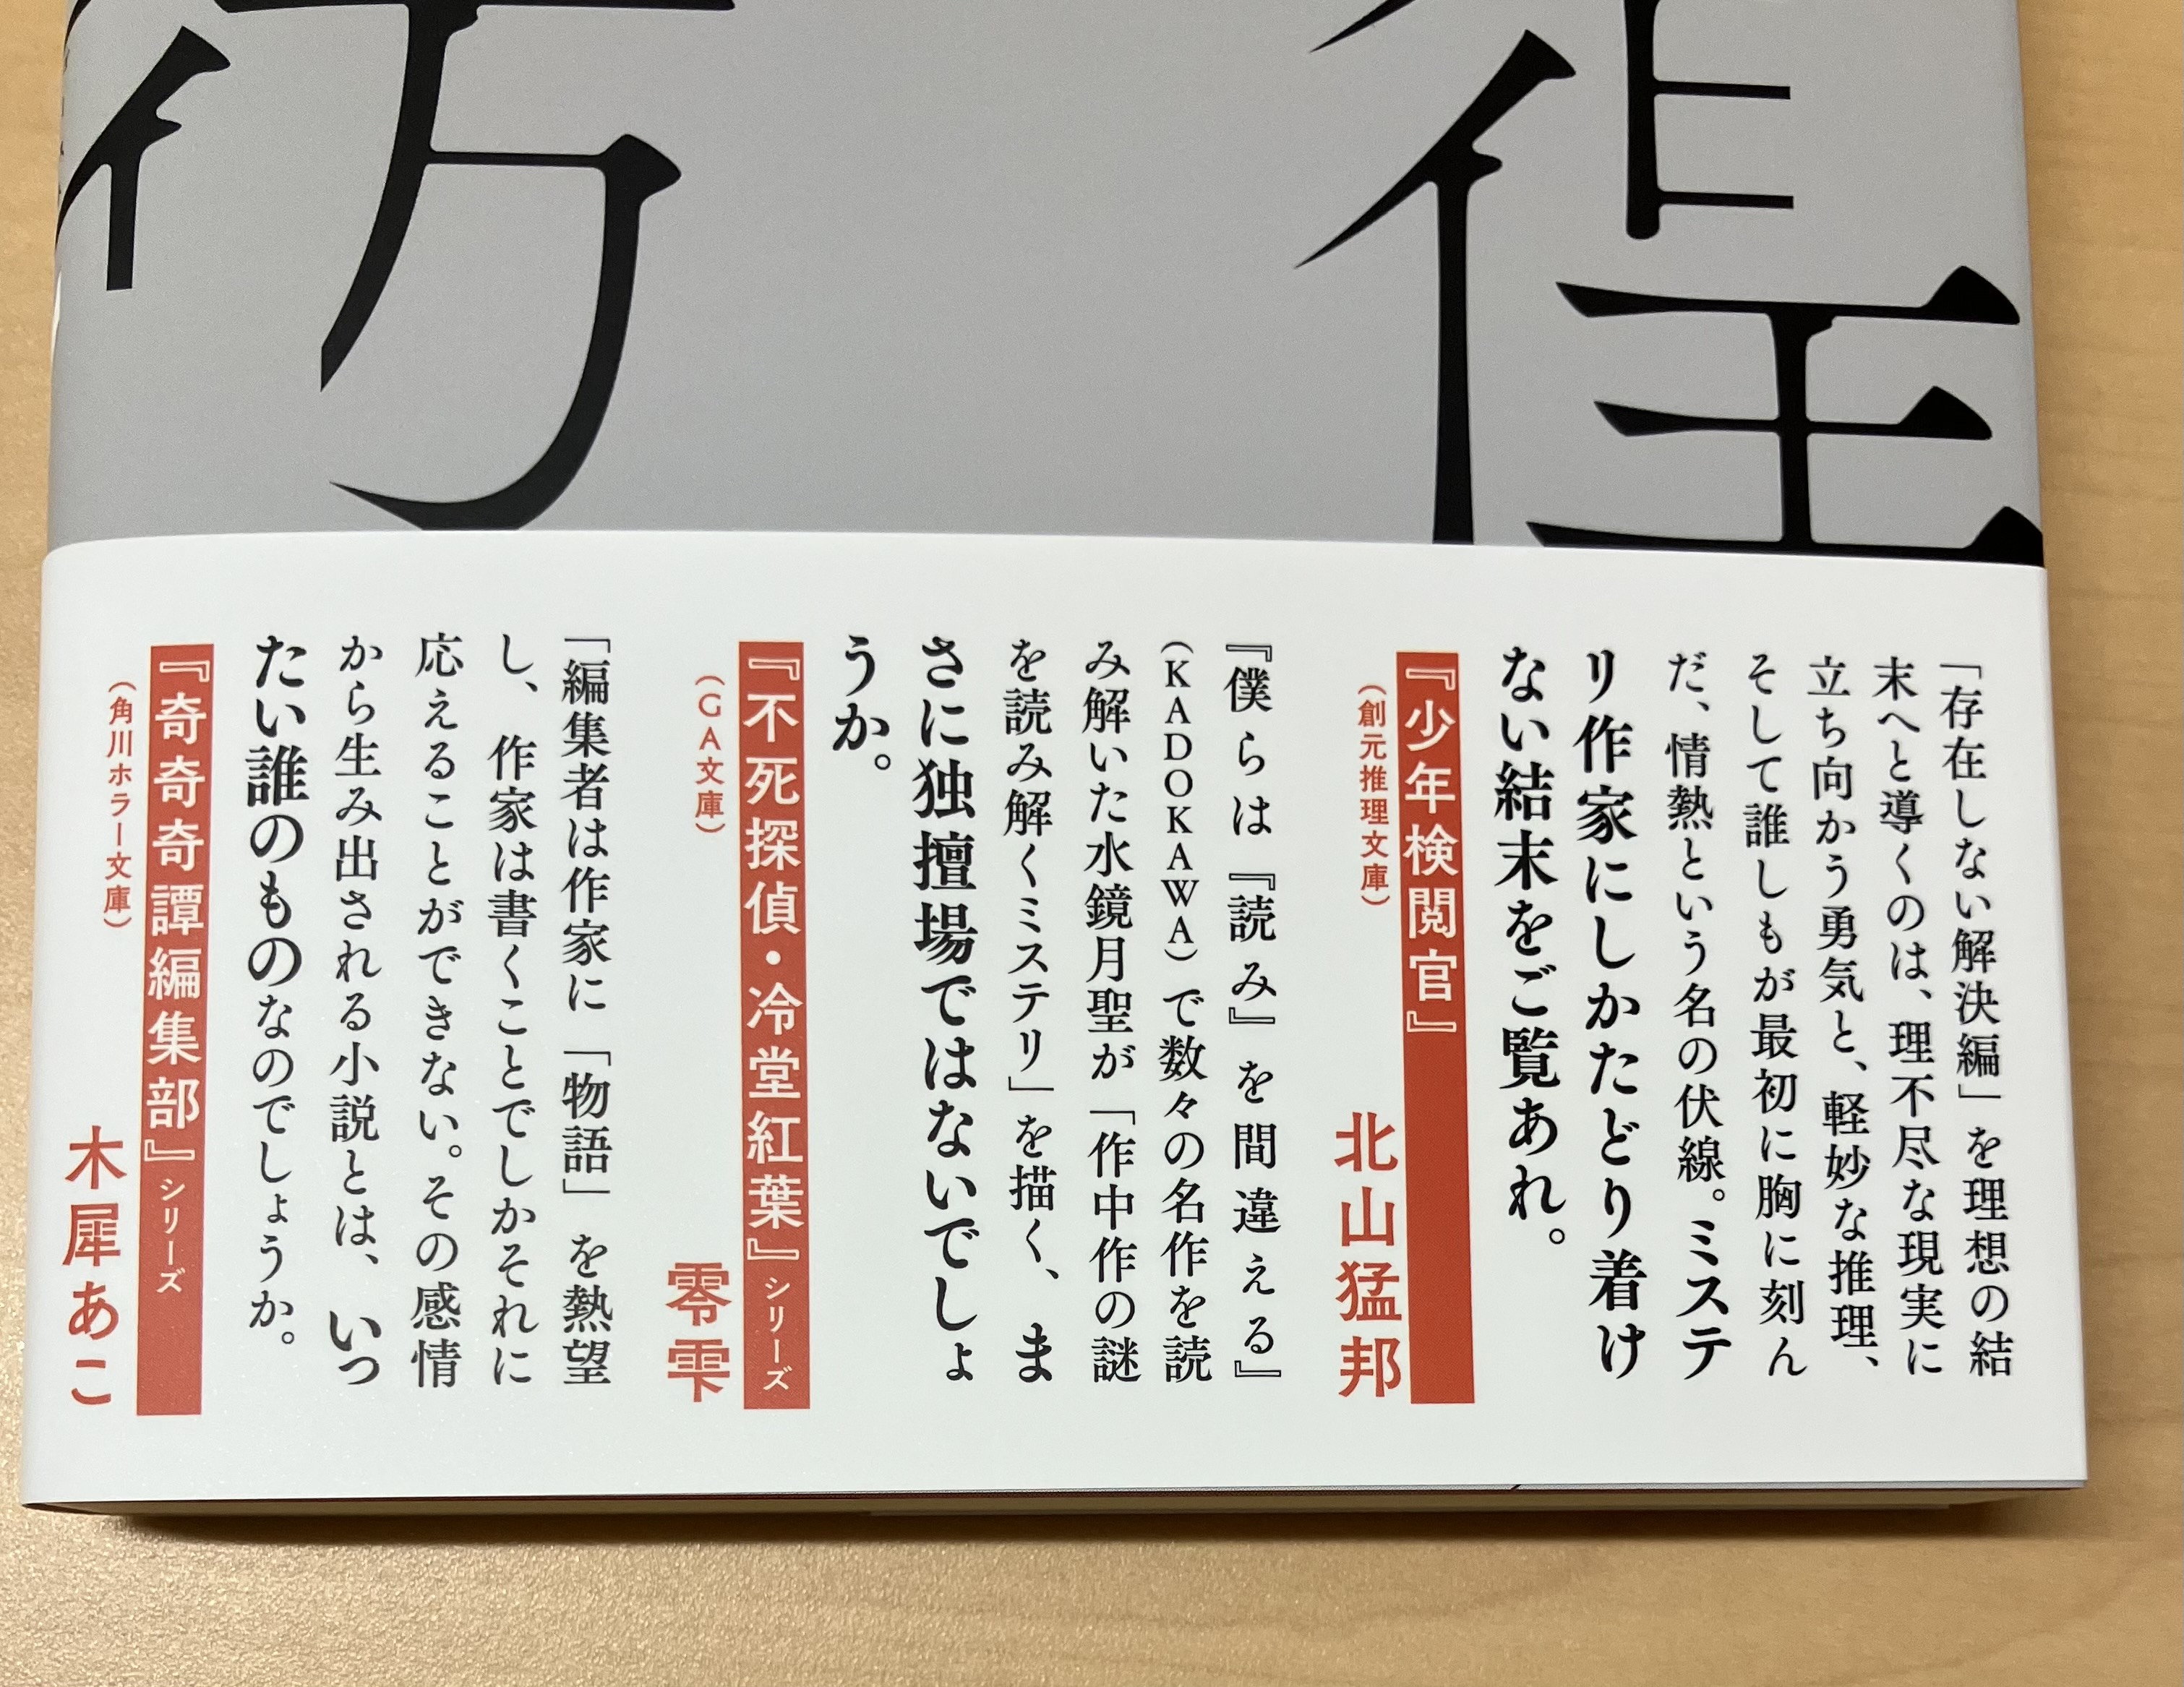 「存在しない解決編」を理想の結
末へと導くのは、理不尽な現実に
立ち向かう勇気と、軽妙な推理、
そして誰しもが最初に胸に刻ん
だ、情熱という名の伏線。ミステ
リ作家にしかたどり着け
ない結末をご覧あれ。
『少年検閲官』
（創元推理文庫）
北山猛邦
『僕らは『読み』を間違える』
（KADOKAWA）で数々の名作を読
み解いた水鏡月聖が「作中作の謎
を読み解くミステリ」を描く、ま
さに独擅場ではないでしょ
うか。
『不死探偵・冷堂紅葉』シリーズ
（GA文庫）
零雫
「編集者は作家に「物語」を熱望
し、作家は書くことでしかそれに
応えることができない。その感情
から生み出される小説とは、いっ
たい誰のものなのでしょうか。
『奇奇奇譚編集部』シリーズ
（角川ホラー文庫）
木犀あこ